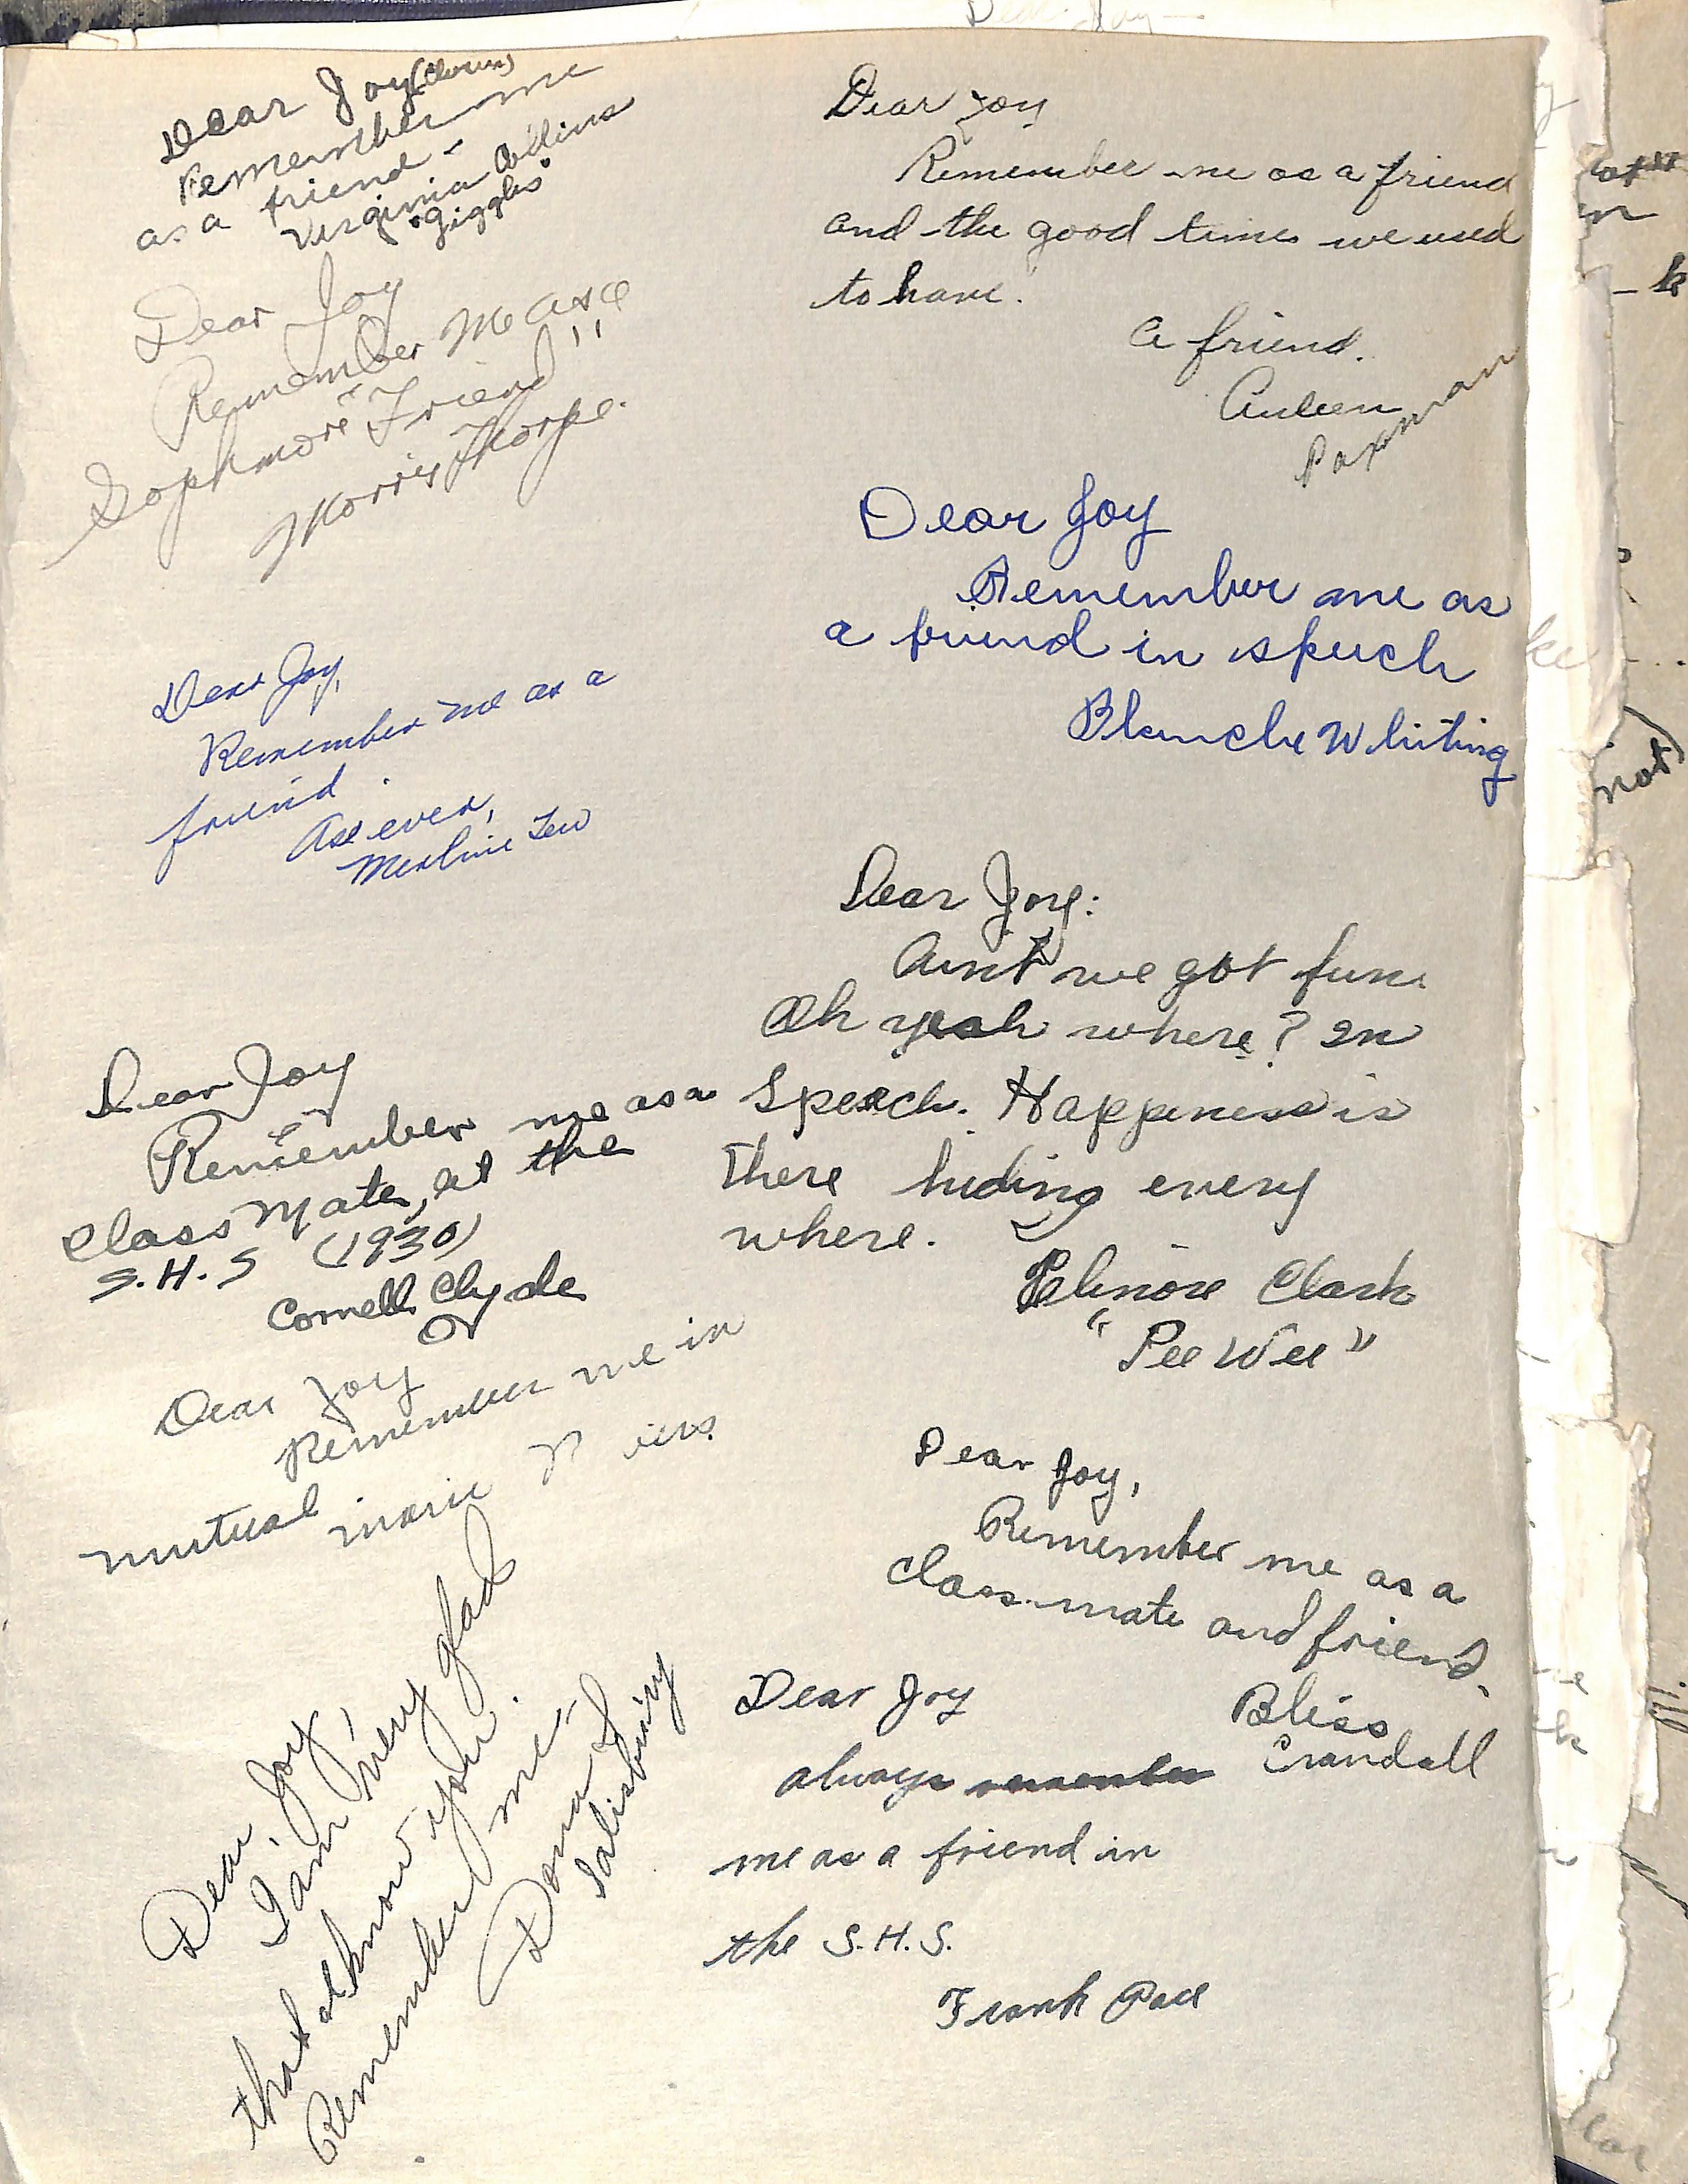 Dear Joy (Clown)
remember me
as a friend -
Virginia Collins
"Giggles"
Dear Joy
Remember Me as a
Sophmore Friend!!
Morris Thorpe.
Dear Joy,
Remember me as a
friend.
As ever,
Merline Lew
Dear Joy
Remember me as a
Class Mate, at the
S.H.S (1930)
Cornell Clyde
Dear Joy
Remember me in
mutual
marie
Dear Joy,
I am very glad
that I know you.
Remember me -
Dona J
Salisbury
Dear Joy
Remember me as a friend
and the good times we used
to have.
A friend.
Auleen
Paxman
Dear Joy
Remember me as
a friend in speech
Blanche Whiting
Dear Joy:
Aint we got fun.
Oh yeah where? In
Speech. Happiness is
there hiding every
where.
Elinore Clark
"Pee Wee"
Dear Joy,
Remember me as a
class-mate and friend.
Bliss
Crandall
Dear Joy
always remember
me as a friend in
the S.H.S.
Frank Pace
not)